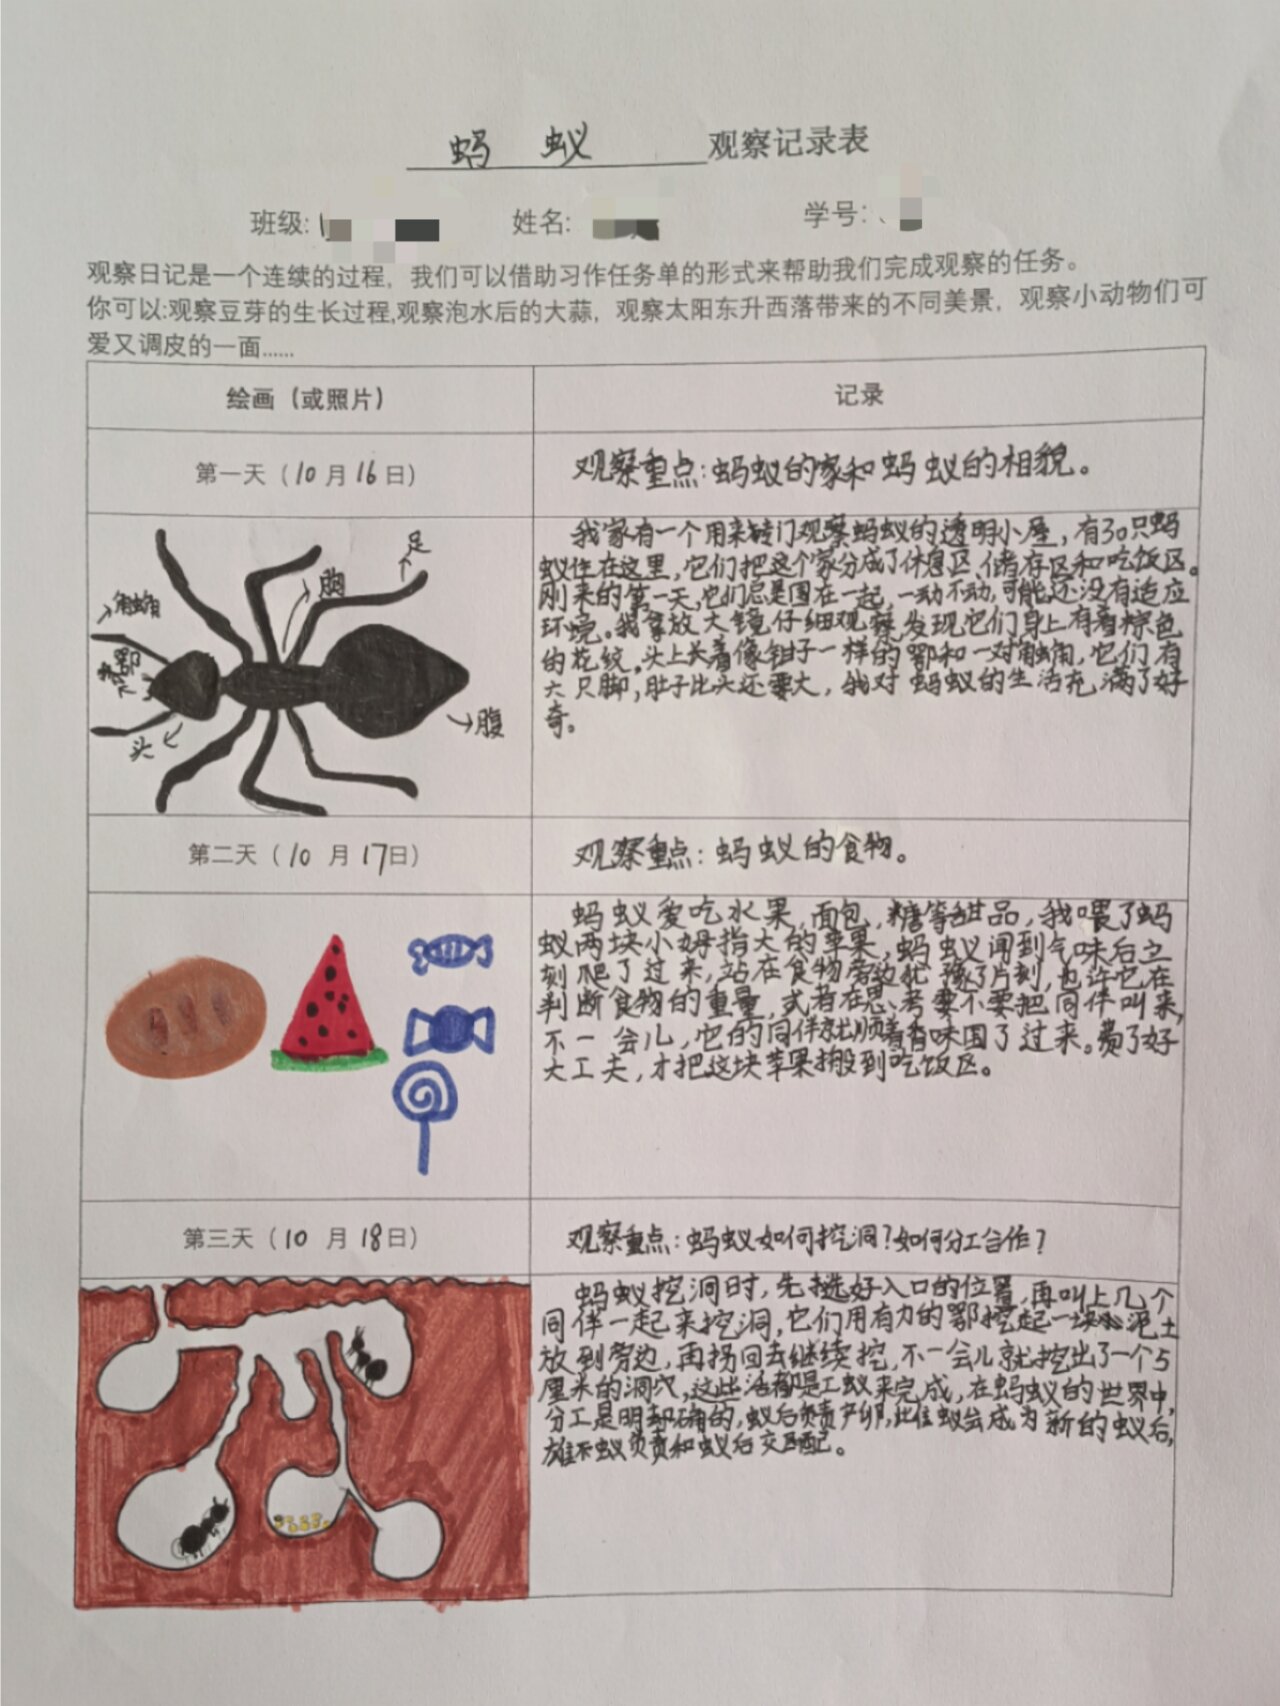 蚂 蚁 观察记录表
班级: 姓名: 学号:
观察日记是一个连续的过程，我们可以借助习作任务单的形式来帮助我们完成观察的任务。
你可以:观察豆芽的生长过程,观察泡水后的大蒜，观察太阳东升西落带来的不同美景，观察小动物们可
爱又调皮的一面......
绘画（或照片） 记录
第一天（10月16日） 观察重点:蚂蚁的家和蚂蚁的相貌。
足
胸
触角
鄂
头
腹
我家有一个用来专门观察蚂蚁的透明小屋,有30只蚂
蚁住在这里,它们把这个家分成了休息区,储存区和吃饭区。
刚来的第一天,它们总是围在一起,一动不动,可能还没有适应
环境。我拿放大镜仔细观察,发现它们身上有着棕色
的花纹。头上长着像钳子一样的鄂和一对触角,它们有
六只脚,肚子比头还要大,我对蚂蚁的生活充满了好
奇。
第二天（10月17日） 观察重点:蚂蚁的食物。
蚂蚁爱吃水果,面包,糖等甜品,我喂了蚂
蚁两块小拇指大的苹果,蚂蚁闻到气味后立
刻爬了过来,站在食物旁边犹豫了片刻,也许它在
判断食物的重量,或者在思考要不要把同伴叫来,
不一会儿,它的同伴就顺着香味围了过来。费了好
大工夫,才把这块苹果搬到吃饭区。
第三天（10月18日） 观察重点:蚂蚁如何挖洞?如何分工合作?
蚂蚁挖洞时,先挑选好入口的位置,再叫上几个
同伴一起来挖洞,它们用有力的鄂挖起一块小泥土
放到旁边,再拐回去继续挖,不一会儿就挖出了一个5
厘米的洞穴,这些活都是工蚁来完成,在蚂蚁的世界中,
分工是明确的,蚁后负责产卵,雌蚁会成为新的蚁后,
雄蚁负责和蚁后交配。